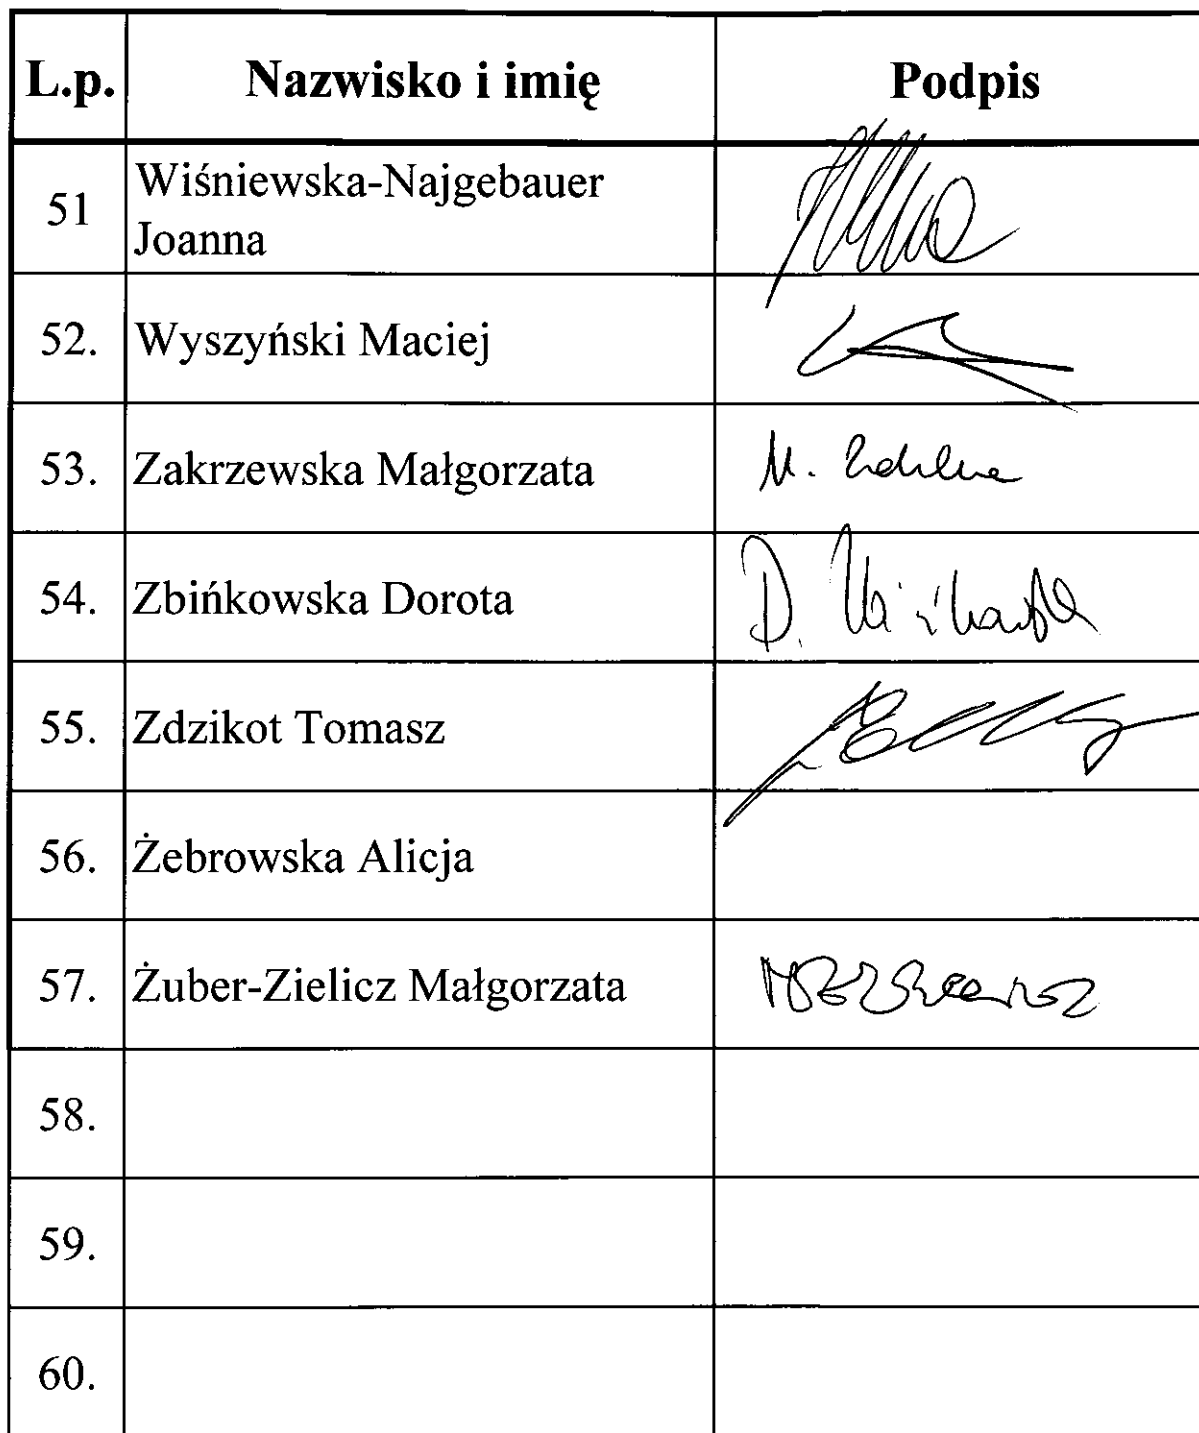 L.p. Nazwisko i imię Podpis
51 Wiśniewska-Najgebauer
Joanna
52. Wyszyński Maciej
53. Zakrzewska Małgorzata M.
54. Zbińkowska Dorota D.
55. Zdzikot Tomasz
56. Żebrowska Alicja
57. Żuber-Zielicz Małgorzata
58.
59.
60.